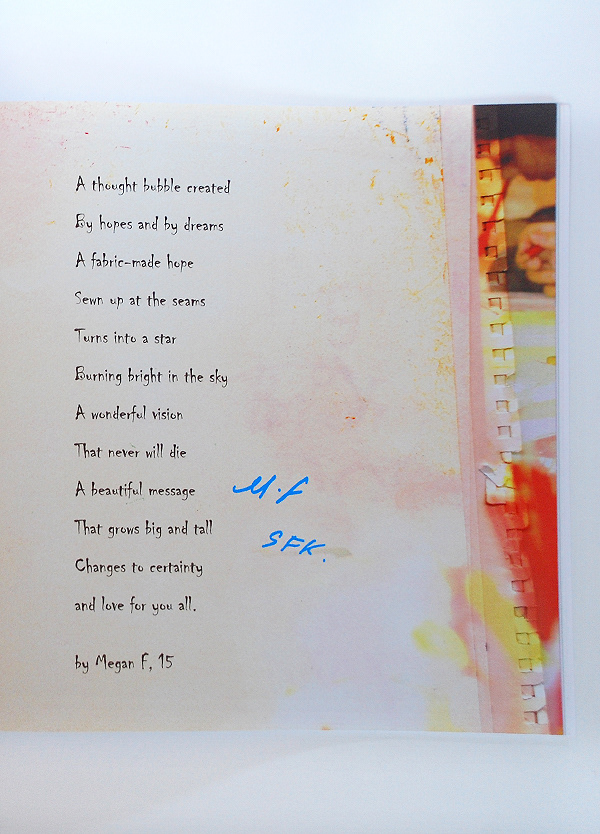 A thought bubble created
By hopes and by dreams
A fabric-made hope
Sewn up at the seams
Turns into a star
Burning bright in the sky
A wonderful vision
That never will die
A beautiful message
M.f
That grows big and tall
SFK.
Changes to certainty
and love for you all.
by Megan F, 15